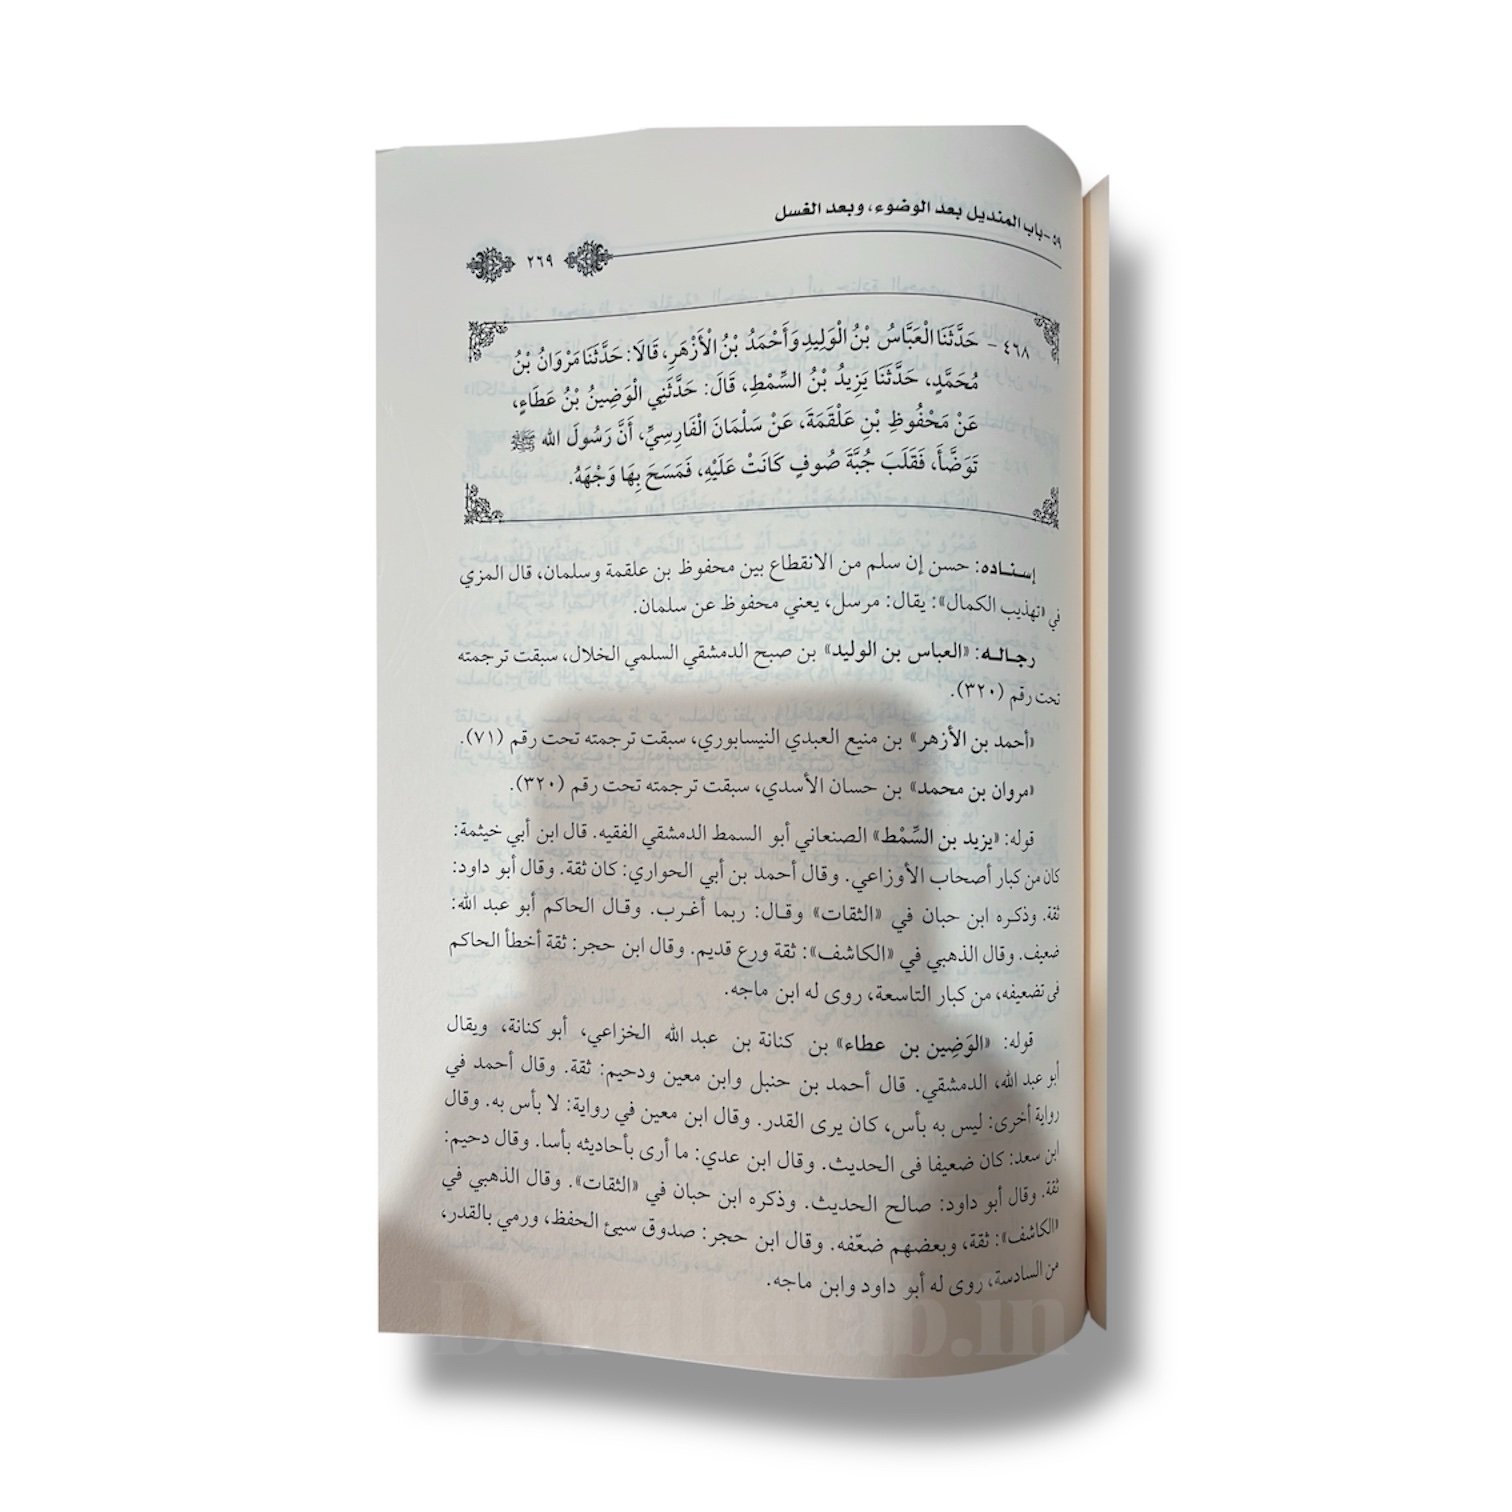 ٥٩- باب المنديل بعد الوضوء، وبعد الغسل
٢٦٩
٤٦٨ - حَدَّثَنَا الْعَبَّاسُ بْنُ الْوَلِيدِ وَأَحْمَدُ بْنُ الْأَزْهَرِ، قَالَا: حَدَّثَنَا مَرْوَانُ بْنُ
مُحَمَّدٍ، حَدَّثَنَا يَزِيدُ بْنُ السِّمْطِ، قَالَ: حَدَّثَنِي الْوَضِينُ بْنُ عَطَاءٍ،
عَنْ مَحْفُوظِ بْنِ عَلْقَمَةَ، عَنْ سَلْمَانَ الْفَارِسِيِّ، أَنَّ رَسُولَ الله ﷺ
تَوَضَّأَ، فَقَلَبَ جُبَّةَ صُوفٍ كَانَتْ عَلَيْهِ، فَمَسَحَ بِهَا وَجْهَهُ.
إسـنـاده: حسن إن سلم من الانقطاع بين محفوظ بن علقمة وسلمان، قال المزي
في «تهذيب الكمال»: يقال: مرسل، يعني محفوظ عن سلمان.
رجـالـه: «العباس بن الوليد» بن صبح الدمشقي السلمي الخلال، سبقت ترجمته
تحت رقم (٣٢٠).
«أحمد بن الأزهر» بن منيع العبدي النيسابوري، سبقت ترجمته تحت رقم (٧١).
«مروان بن محمد» بن حسان الأسدي، سبقت ترجمته تحت رقم (٣٢٠).
قوله: «يزيد بن السِّمْط» الصنعاني أبو السمط الدمشقي الفقيه. قال ابن أبي خيثمة:
كان من كبار أصحاب الأوزاعي. وقال أحمد بن أبي الحواري: كان ثقة. وقال أبو داود:
ثقة. وذكـره ابن حبان في «الثقات» وقـال: ربما أغـرب. وقـال الحاكم أبو عبد الله:
ضعيف. وقال الذهبي في «الكاشف»: ثقة ورع قديم. وقال ابن حجر: ثقة أخطأ الحاكم
فى تضعيفه، من كبار التاسعة، روى له ابن ماجه.
قوله: «الوَضِين بن عطاء» بن كنانة بن عبد الله الخزاعي، أبو كنانة، ويقال
أبو عبد الله، الدمشقي. قال أحمد بن حنبل وابن معين ودحيم: ثقة. وقال أحمد في
رواية أخرى: ليس به بأس، كان يرى القدر. وقال ابن معين في رواية: لا بأس به. وقال
ابن سعد: كان ضعيفا فى الحديث. وقال ابن عدي: ما أرى بأحاديثه بأسا. وقال دحيم:
ثقة. وقال أبو داود: صالح الحديث. وذكره ابن حبان في «الثقات». وقال الذهبي في
«الكاشف»: ثقة، وبعضهم ضعّفه. وقال ابن حجر: صدوق سيئ الحفظ، ورمي بالقدر،
من السادسة، روى له أبو داود وابن ماجه.